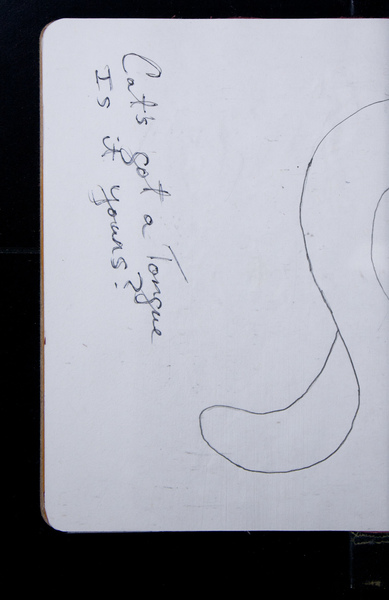 Cat's got a Tongue
Is it yours?